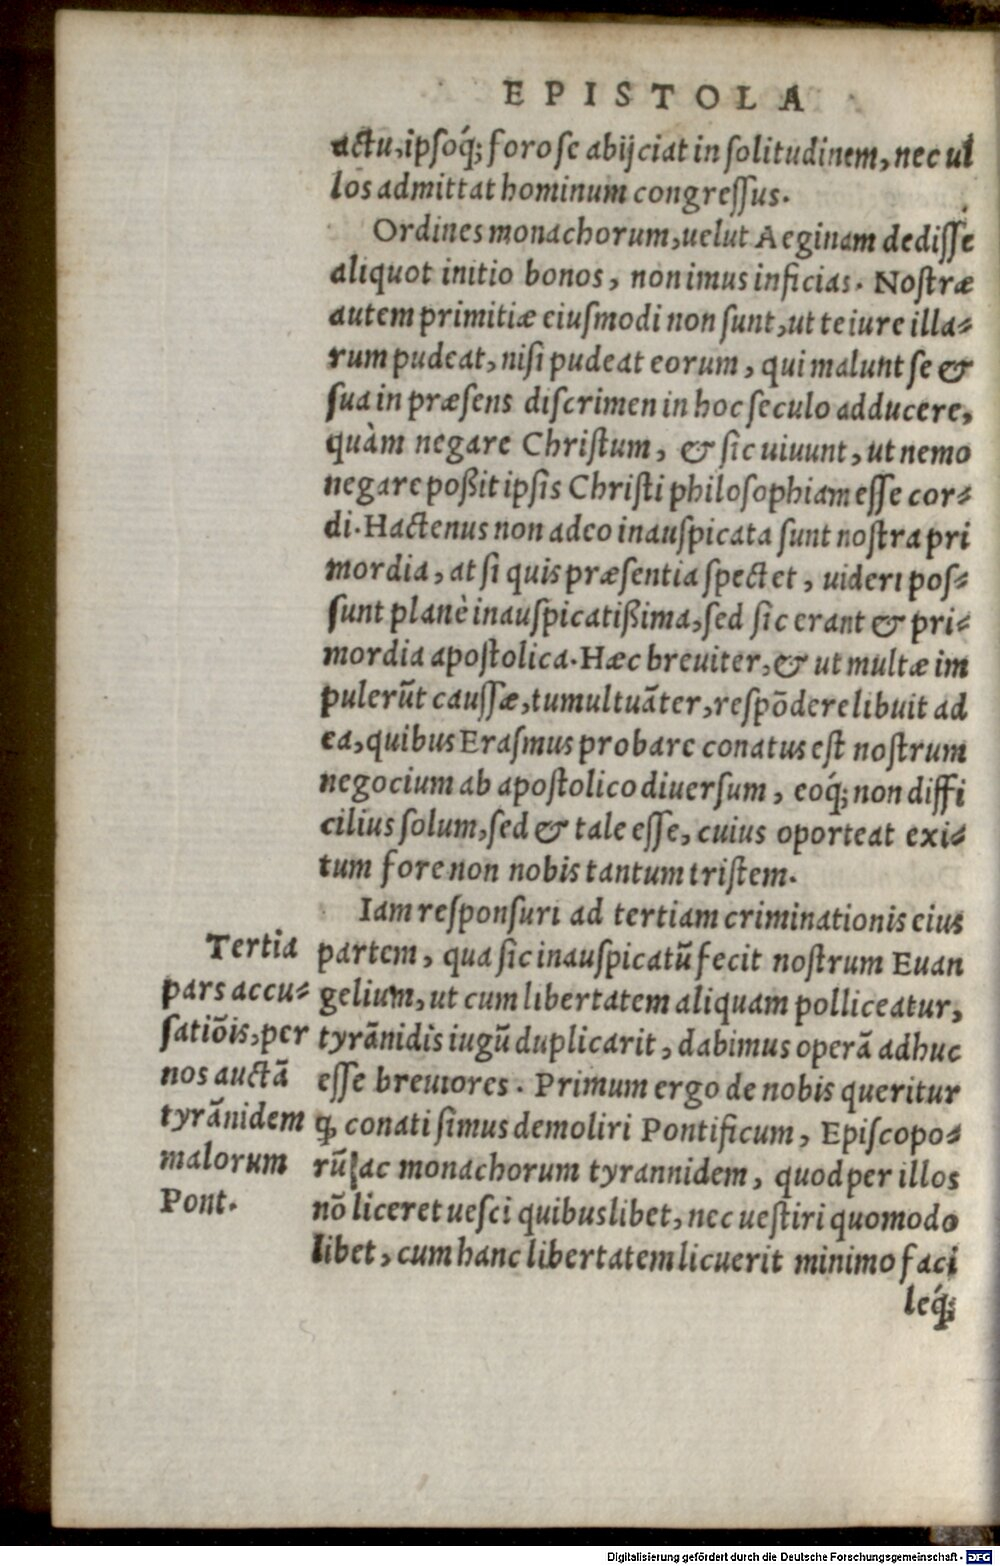 EPISTOLA
actu, ipsoq́; foro se abijciat in solitudinem, nec ul
los admittat hominum congressus.
Ordines monachorum, uelut Aeginam dedisse
aliquot initio bonos, non imus inficias. Nostræ
autem primitiæ eiusmodi non sunt, ut te iure illa-
rum pudeat, nisi pudeat eorum, qui malunt se &
sua in præsens discrimen in hoc seculo adducere,
quàm negare Christum, & sic uiuunt, ut nemo
negare poßit ipsis Christi philosophiam esse cor-
di. Hactenus non adeo inauspicata sunt nostra pri
mordia, at si quis præsentia spectet, uideri pos-
sunt planè inauspicatißima, sed sic erant & pri-
mordia apostolica. Hæc breuiter, & ut multæ im
pulerūt caussæ, tumultuāter, respōdere libuit ad
ea, quibus Erasmus probare conatus est nostrum
negocium ab apostolico diuersum, eoq́; non diffi
cilius solum, sed & tale esse, cuius oporteat exi-
tum fore non nobis tantum tristem.
Iam responsuri ad tertiam criminationis eius
partem, qua sic inauspicatū fecit nostrum Euan
gelium, ut cum libertatem aliquam polliceatur,
tyrānidis iugū duplicarit, dabimus operā adhuc
esse breuiores. Primum ergo de nobis queritur
ꝙ conati simus demoliri Pontificum, Episcopo-
rū, ac monachorum tyrannidem, quod per illos
nō liceret uesci quibuslibet, nec uestiri quomodo
libet, cum hanc libertatem licuerit minimo faci
leq́;
Tertia
pars accu-
satiōis, per
nos auctā
tyrānidem
malorum
Pont.
Digitalisierung gefördert durch die Deutsche Forschungsgemeinschaft - DFG